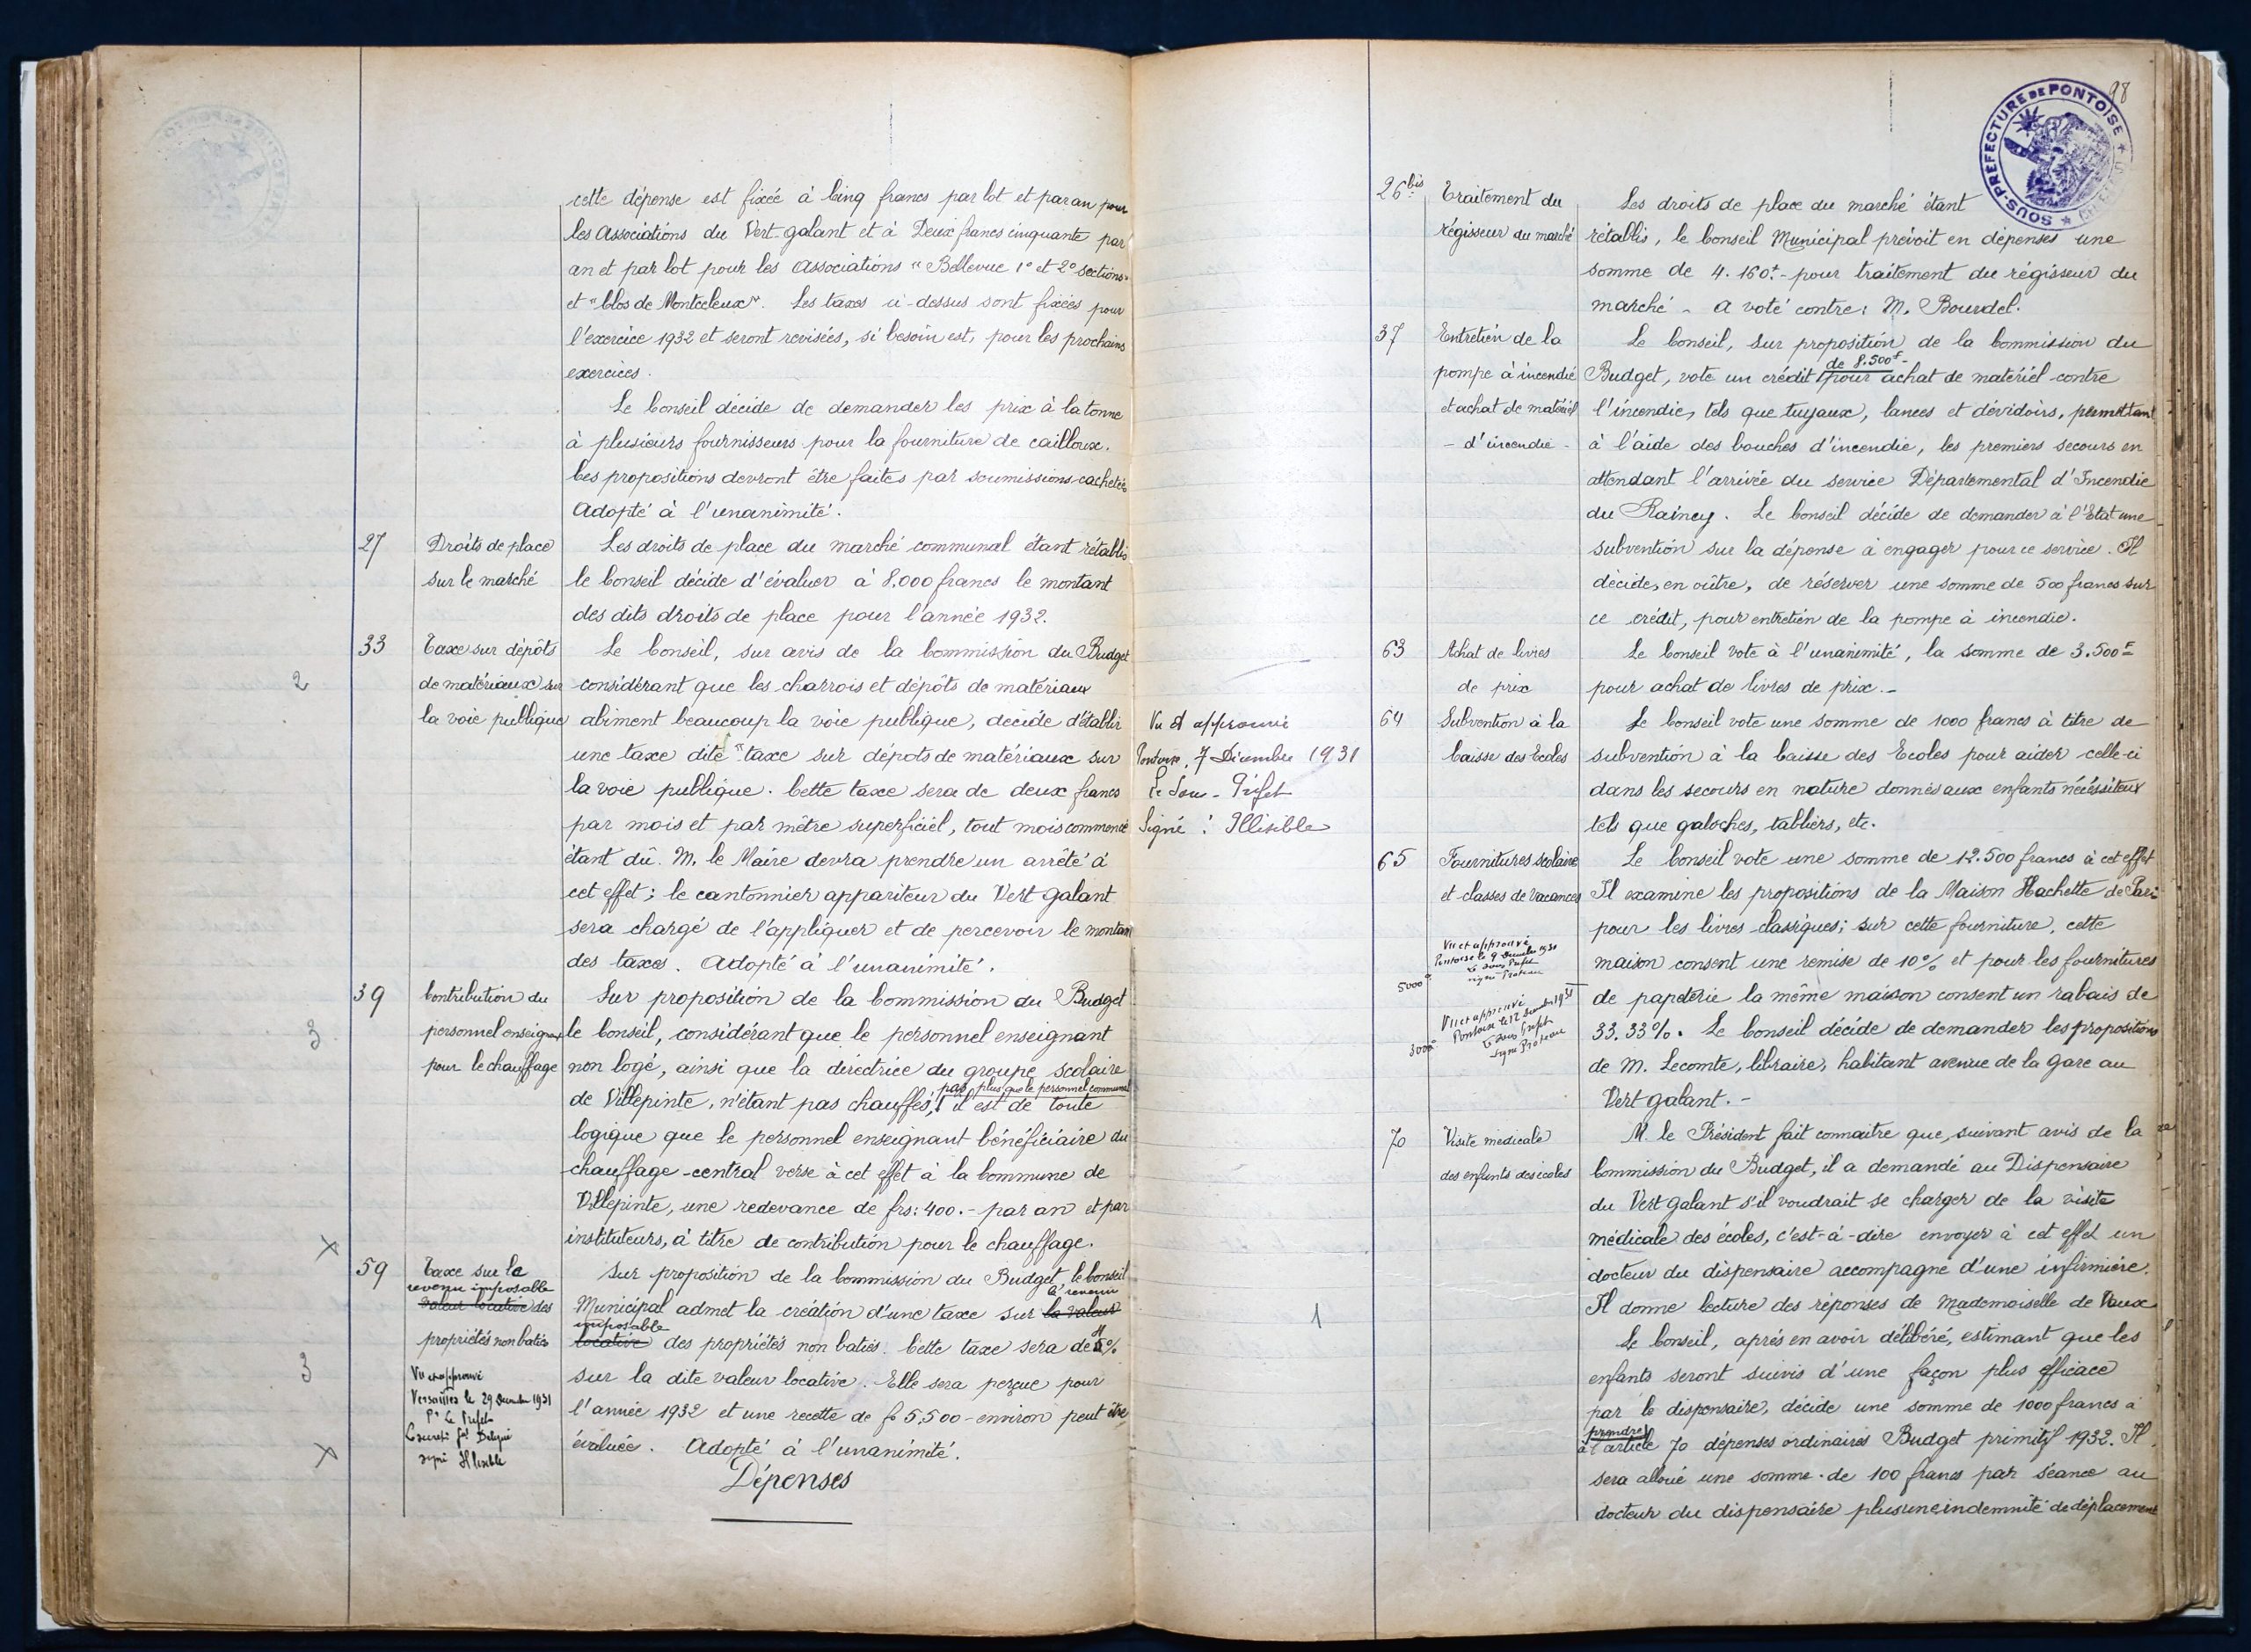 cette dépense est fixée à Cinq francs par lot et par an pour
les Associations du Vert-galant et à Deux francs cinquante par
an et par lot pour les Associations "Bellevue 1° et 2° sections"
et "Clos de Montceleux". Les taxes ci-dessus sont fixées pour
l'exercice 1932 et seront revisées, si besoin est, pour les prochains
exercices.
Le Conseil décide de demander les prix à la tonne
à plusieurs fournisseurs pour la fourniture de cailloux.
Ces propositions devront être faites par soumissions cachetées
Adopté à l'unanimité.
27
Droits de place
sur le marché
Les droits de place du marché communal étant rétablis
le Conseil décide d'évaluer à 8.000 francs le montant
des dits droits de place pour l'année 1932.
33
2
Taxe sur dépôts
de matériaux sur
la voie publique
Le Conseil, sur avis de la Commission du Budget
considérant que les charrois et dépôts de matériaux
abiment beaucoup la voie publique, décide d'établir
une taxe dite "taxe sur dépots de matériaux sur
la voie publique. Cette taxe sera de deux francs
par mois et par mètre superficiel, tout mois commencé
étant dû. M. le Maire devra prendre un arrêté à
cet effet; le cantonnier appariteur du Vert galant
sera chargé de l'appliquer et de percevoir le montan
des taxes. Adopté à l'unanimité.
39
3
Contribution du
personnel enseignant
pour le chauffage
Sur proposition de la Commission du Budget
le Conseil, considérant que le personnel enseignant
non logé, ainsi que la directrice du groupe scolaire
pas plus que le personnel communal
de Villepinte, n'étant pas chauffés, il est de toute
logique que le personnel enseignant bénéficiaire du
chauffage-central verse à cet effet à la Commune de
Villepinte, une redevance de frs: 400.- par an et par
instituteurs, à titre de contribution pour le chauffage.
X
59
Taxe sur le
revenu imposable
valeur locative des
propriétés non baties
3
Vu et approuvé
Versailles le 29 Décembre 1931
Pr Le Préfet
Le Secrét. Gal Délégué
signé Illisible
X
Sur proposition de la Commission du Budget, le Conseil
le revenu
Municipal admet la création d'une taxe sur la valeur
imposable
locative des propriétés non baties. Cette taxe sera de %
sur la dite valeur locative. Elle sera perçue pour
l'année 1932 et une recette de f 5,500 - environ peut être
évaluée. Adopté à l'unanimité.
Dépenses
Vu et approuvé
Pontoise, 7 Décembre 1931
Le Sous-Préfet
Signé : Illisible
1
98
SOUS-PREFECTURE DE PONTOISE
26 bis
Traitement du
régisseur du marché
Les droits de place du marché étant
rétablis, le Conseil Municipal prévoit en dépenses une
somme de 4.160f.- pour traitement du régisseur du
marché - A voté contre: M. Bourdel.
37
Entretien de la
pompe à incendie
et achat de matériel
- d'incendie -
Le Conseil, sur proposition de la Commission du
de 8.500f-
Budget, vote un crédit pour achat de matériel contre
l'incendie, tels que tuyaux, lances et dévidoirs, permettant
à l'aide des bouches d'incendie, les premiers secours en
attendant l'arrivée du service Départemental d'Incendie
du Raincy. Le Conseil décide de demander à l'Etat une
subvention sur la dépense à engager pour ce service. Il
décide, en oûtre, de réserver une somme de 500 francs sur
ce crédit, pour entretien de la pompe à incendie.
63
Achat de livres
de prix
Le Conseil vote à l'unanimité, la somme de 3.500F
pour achat de livres de prix.-
64
Subvention à la
Caisse des Ecoles
Le Conseil vote une somme de 1000 francs à titre de
subvention à la Caisse des Ecoles pour aider celle-ci
dans les secours en nature donnés aux enfants nécéssiteux
tels que galoches, tabliers, etc.
65
Fournitures scolaire
et classes de vacances
Vu et approuvé
Pontoise le 9 Décembre 1931
Le Sous Préfet
signé
5000
Vu et approuvé
Pontoise le 12 Décembre 1931
Le Sous Préfet
signé
3000
Le Conseil vote une somme de 12.500 francs à cet effet
Il examine les propositions de la Maison Hachette de Paris
pour les livres classiques; sur cette fourniture, cette
maison consent une remise de 10% et pour les fournitures
de papeterie la même maison consent un rabais de
33.33%. Le Conseil décide de demander les propositions
de M. Lecomte, libraire, habitant avenue de la Gare au
Vert galant.-
70
Visite médicale
des enfants des écoles
M. le Président fait connaitre que, suivant avis de la
Commission du Budget, il a demandé au Dispensaire
du Vert Galant s'il voudrait se charger de la visite
médicale des écoles, c'est-à-dire envoyer à cet effet un
docteur du dispensaire accompagné d'une infirmière.
Il donne lecture des réponses de Mademoiselle de Vaux
Le Conseil, après en avoir délibéré, estimant que les
enfants seront suivis d'une façon plus efficace
par le dispensaire, décide une somme de 1000 francs à
prendre
à l'article 70 dépenses ordinaires Budget primitif 1932. Il
sera alloué une somme de 100 francs par séance au
docteur du dispensaire plus une indemnité de déplacement